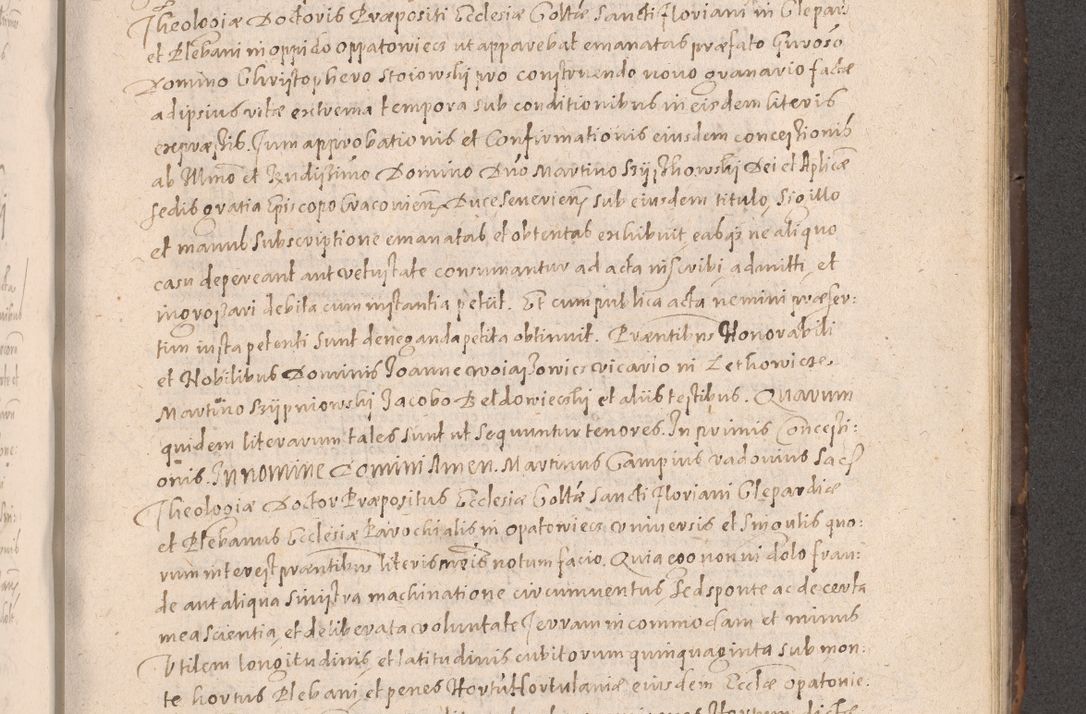 Theologiæ Doctoris Præpositi Ecclesiæ Coltæ Sancti Floriani in Clepar
et Plebani in oppido Oppatowiecz ut apparebat emanatas præfato Gnroso
Domino Christophero Stoiowski pro construendo novo granario factæ
ad ipsius vitæ extrema tempora sub conditionibus in eisdem literis
expræstis. Tum approbationis et Confirmationis eiusdem concestionis
ab Illmo et Rndissimo Domino Dno Martino Szyszkowski Dei et Aplicæ
Sedis gratia Episcopo Cracovien, Duce Severien, sub eiusdem titulo, Sigillo
et manus subscriptione emanatas, et obtentas exhibuit, easq; ne aliquo
casu depereant aut vetustate consumantur ad acta inscribi, admitti, et
ingrossari debita cum instantia petiit. Et cum publica acta nemini præser:
tim iusta petenti sunt deneganda petita obtinuit. Præntibus Honorabili
et Nobilibus Dominis Joanne Woiaszowicz vicario in Lethowicze,
Martino Szypniowski Jacobo Beldowiecski et aliis testibus. Quarum
quidem literarum tales sunt ut sequuntur tenores. In primis Concesti:
onis. In nomine Domini Amen. Martinus Campius Vadovius Sac
Theologiæ Doctor Præpositus Ecclesiæ Coltæ Sancti Floriani Clepardiæ
et Plebanus Ecclesiæ Parochialis in Opatowiecz universis et singulis quo:
rum interest præntibus literis meis notum facio. Quia ego non vi dolo frau:
de aut aliqua sinistra machinatione circumventus, sed sponte ac de certa
mea scientia, et deliberata voluntate Terram incommodam et minus
Utilem longitudinis, et latitudinis cubitorum quinquaginta sub mon:
te hortus Plebani, et penes Hortu Hortulaniæ eiusdem Ecclæ Opatovie: